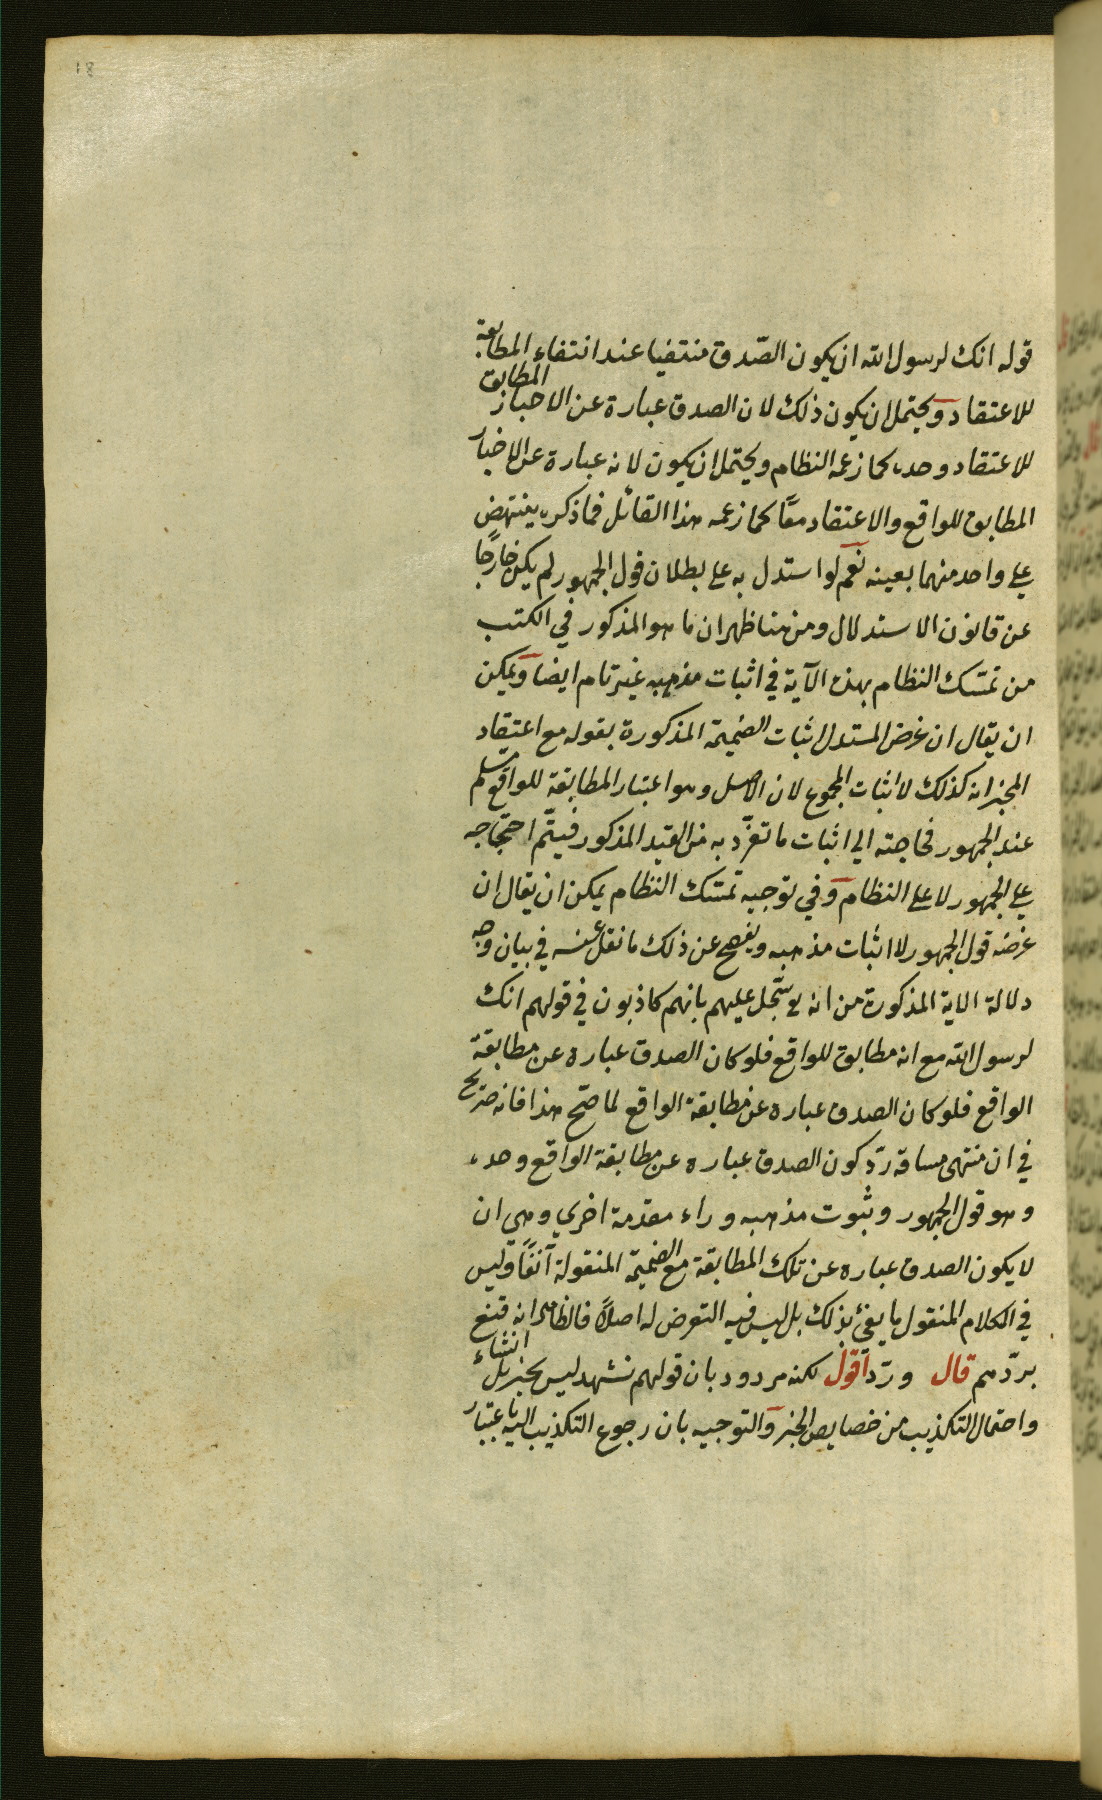 18
قوله انك لرسول الله ان يكون الصّدق منتفيا عند انتفاء المطابقة
للاعتقاد ويحتمل ان يكون ذلك لان الصدق عبارة عن الاخبار المطابق
للاعتقاد وحده كما زعمه النظام ويحتمل ان يكون لانه عبارة عن الاخبار
المطابق للواقع والاعتقاد معًا كما زعمه هذا القائل فما ذكره ينتهض
على واحد منهما بعينه نعم لو استدل به على بطلان قول الجمهور لم يكن خارجًا
عن قانون الاستدلال ومن هنا ظهر ان ما هو المذكور في الكتب
من تمسّك النظام بهذه الآية في اثبات مذهبه غير تام ايضا ويمكن
ان يقال ان غرض المستدل اثبات الضميمة المذكورة بقوله مع اعتقاد
المخبر انه كذلك لا اثبات المجموع لان الاصل وهو اعتبار المطابقة للواقع مسلم
عند الجمهور فحاجته الى اثبات ما تفرّد به من القيد المذكور فيتمّ احتجاجه
على الجمهور لا على النظام وفي توجيه تمسّك النظام يمكن ان يقال ان
غرضه قول الجمهور لا اثبات مذهبه ويفصح عن ذلك ما نقل عنه في بيان وجه
دلالة الاية المذكورة من انه تع سجّل عليهم بانهم كاذبون في قولهم انك
لرسول الله مع انه مطابق للواقع فلو كان الصدق عباره عن مطابقة
الواقع فلو كان الصدق عباره عن مطابقة الواقع لما صحّ هذا فانه صريح
في ان منتهى مساقه ردّ كون الصدق عباره عن مطابقة الواقع وحده
وهو قول الجمهور وثبوت مذهبه وراء مقدمة اخرى وهي ان
لا يكون الصدق عباره عن تلك المطابقة مع الضميمة المنقولة آنفًا وليس
في الكلام المنقول ما يفي بذلك بل ليس فيه التعرض له اصلًا فالظاهر انه قنع
بردّهم قال وردّ اقول لكنه مردود بان قولهم نشهد ليس بخبر بل انشاء
واحتمال التكذيب من خصايص الخبر والتوجيه بان رجوع التكذيب اليه باعتبار